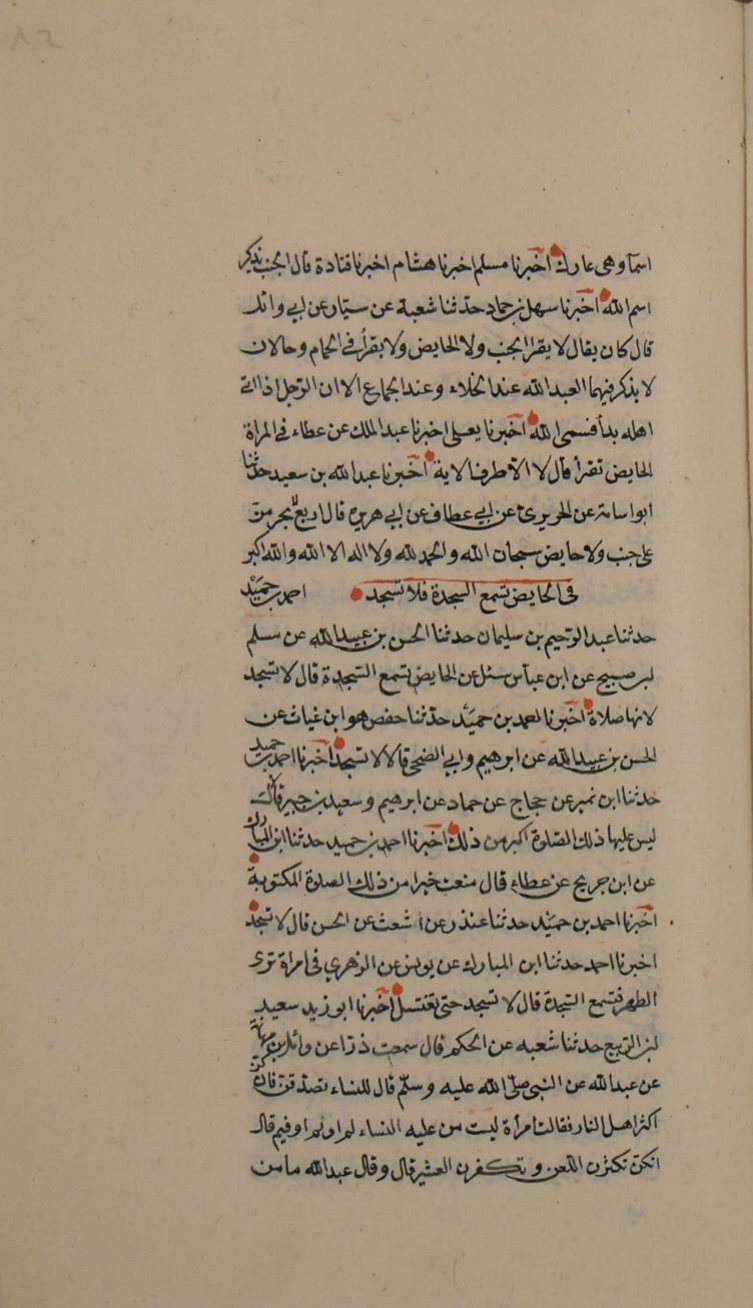 اسماء وهى عارك اخبرنا مسلم اخبرنا هشام اخبرنا قتادة قال الجنب يذكر
اسم الله اخبرنا سهل بن حماد حدثنا شعبة عن سيار عن ابي وائل
قال كان يقال لا يقرا الجنب ولا الحايض ولا يقرأ في الحمام وحالان
لا يذكر فيهما العبد الله عند الخلاء وعند الجماع الا ان الرجل اذا اتى
اهله بدأ فسمى الله اخبرنا يعلى اخبرنا عبد الملك عن عطاء في المراة
الحايض تقرأ قال لا الا طرف الاية اخبرنا عبد الله بن سعيد حدثنا
ابو اسامة عن الجريري عن ابي عطاف عن ابي هريره قال اربع لا يحرمن
على جنب ولا حايض سبحان الله والحمد لله ولا اله الا الله والله اكبر
في الحايض تسمع السجدة فلا تسجد احمد بن حميد
حدثنا عبد الرحيم بن سليمان حدثنا الحسن بن عبيد الله عن مسلم
بن صبيح عن ابن عباس سئل عن الحايض تسمع السجدة قال لا تسجد
لانها صلاة اخبرنا احمد بن حميد حدثنا حفص هو ابن غياث عن
الحسن بن عبيد الله عن ابرهيم وابي الضحى قالا لا تسجد اخبرنا احمد بن حميد
حدثنا ابن نمير عن حجاج عن حماد عن ابرهيم وسعيد بن جبير قالا
ليس عليها ذلك الصلوة اكبر من ذلك اخبرنا احمد بن حميد حدثنا ابن المبارك
عن ابن جريج عن عطاء قال منعت خيرا من ذلك الصلوة المكتوبة
اخبرنا احمد بن حميد حدثنا غندر عن اشعث عن الحسن قال لا تسجد
اخبرنا احمد حدثنا ابن المبارك عن يونس عن الزهري في امراة ترى
الطهر فتسمع السجدة قال لا تسجد حتى تغتسل اخبرنا ابو زيد سعيد
بن الربيع حدثنا شعبه عن الحكم قال سمعت ذرا عن وائل بن مهانة
عن عبد الله عن النبي صلى الله عليه وسلم قال للنساء تصدقن فانكن
اكثر اهل النار فقالت امرأة ليست من عليه النساء لم او بم او فيم قال
انكن تكثرن اللعن وتكفرن العشير قال وقال عبد الله ما من